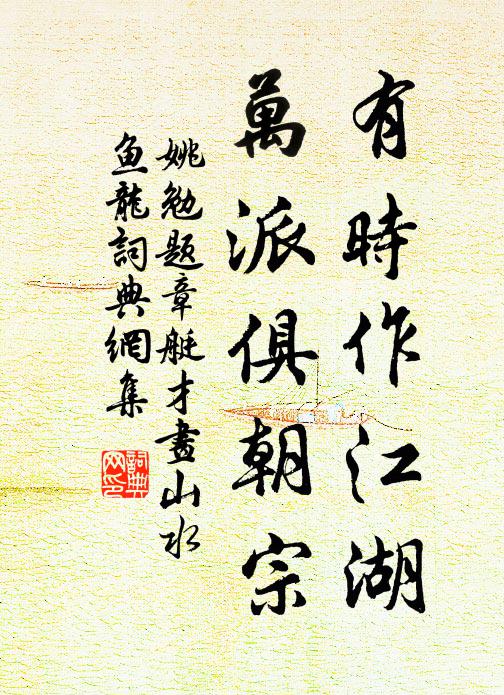 有時作江湖
萬派俱朝宗
姚勉題章艇才畫山水
鱼龍詞典網集
詞典網印